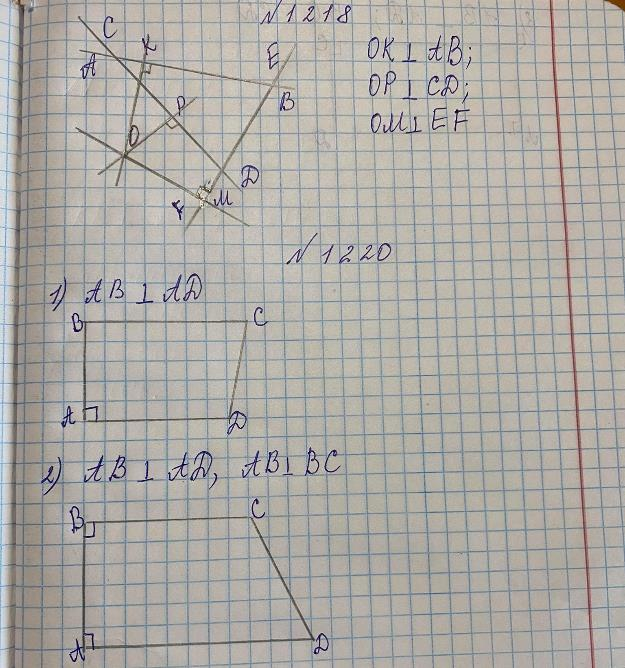 N 1218
C
K
A
E
B
P
O
D
M
F
OK ⊥ AB;
OP ⊥ CD;
OM ⊥ EF
N 1220
1) AB ⊥ AD
B
C
A
D
2) AB ⊥ AD, AB ⊥ BC
B
C
A
D